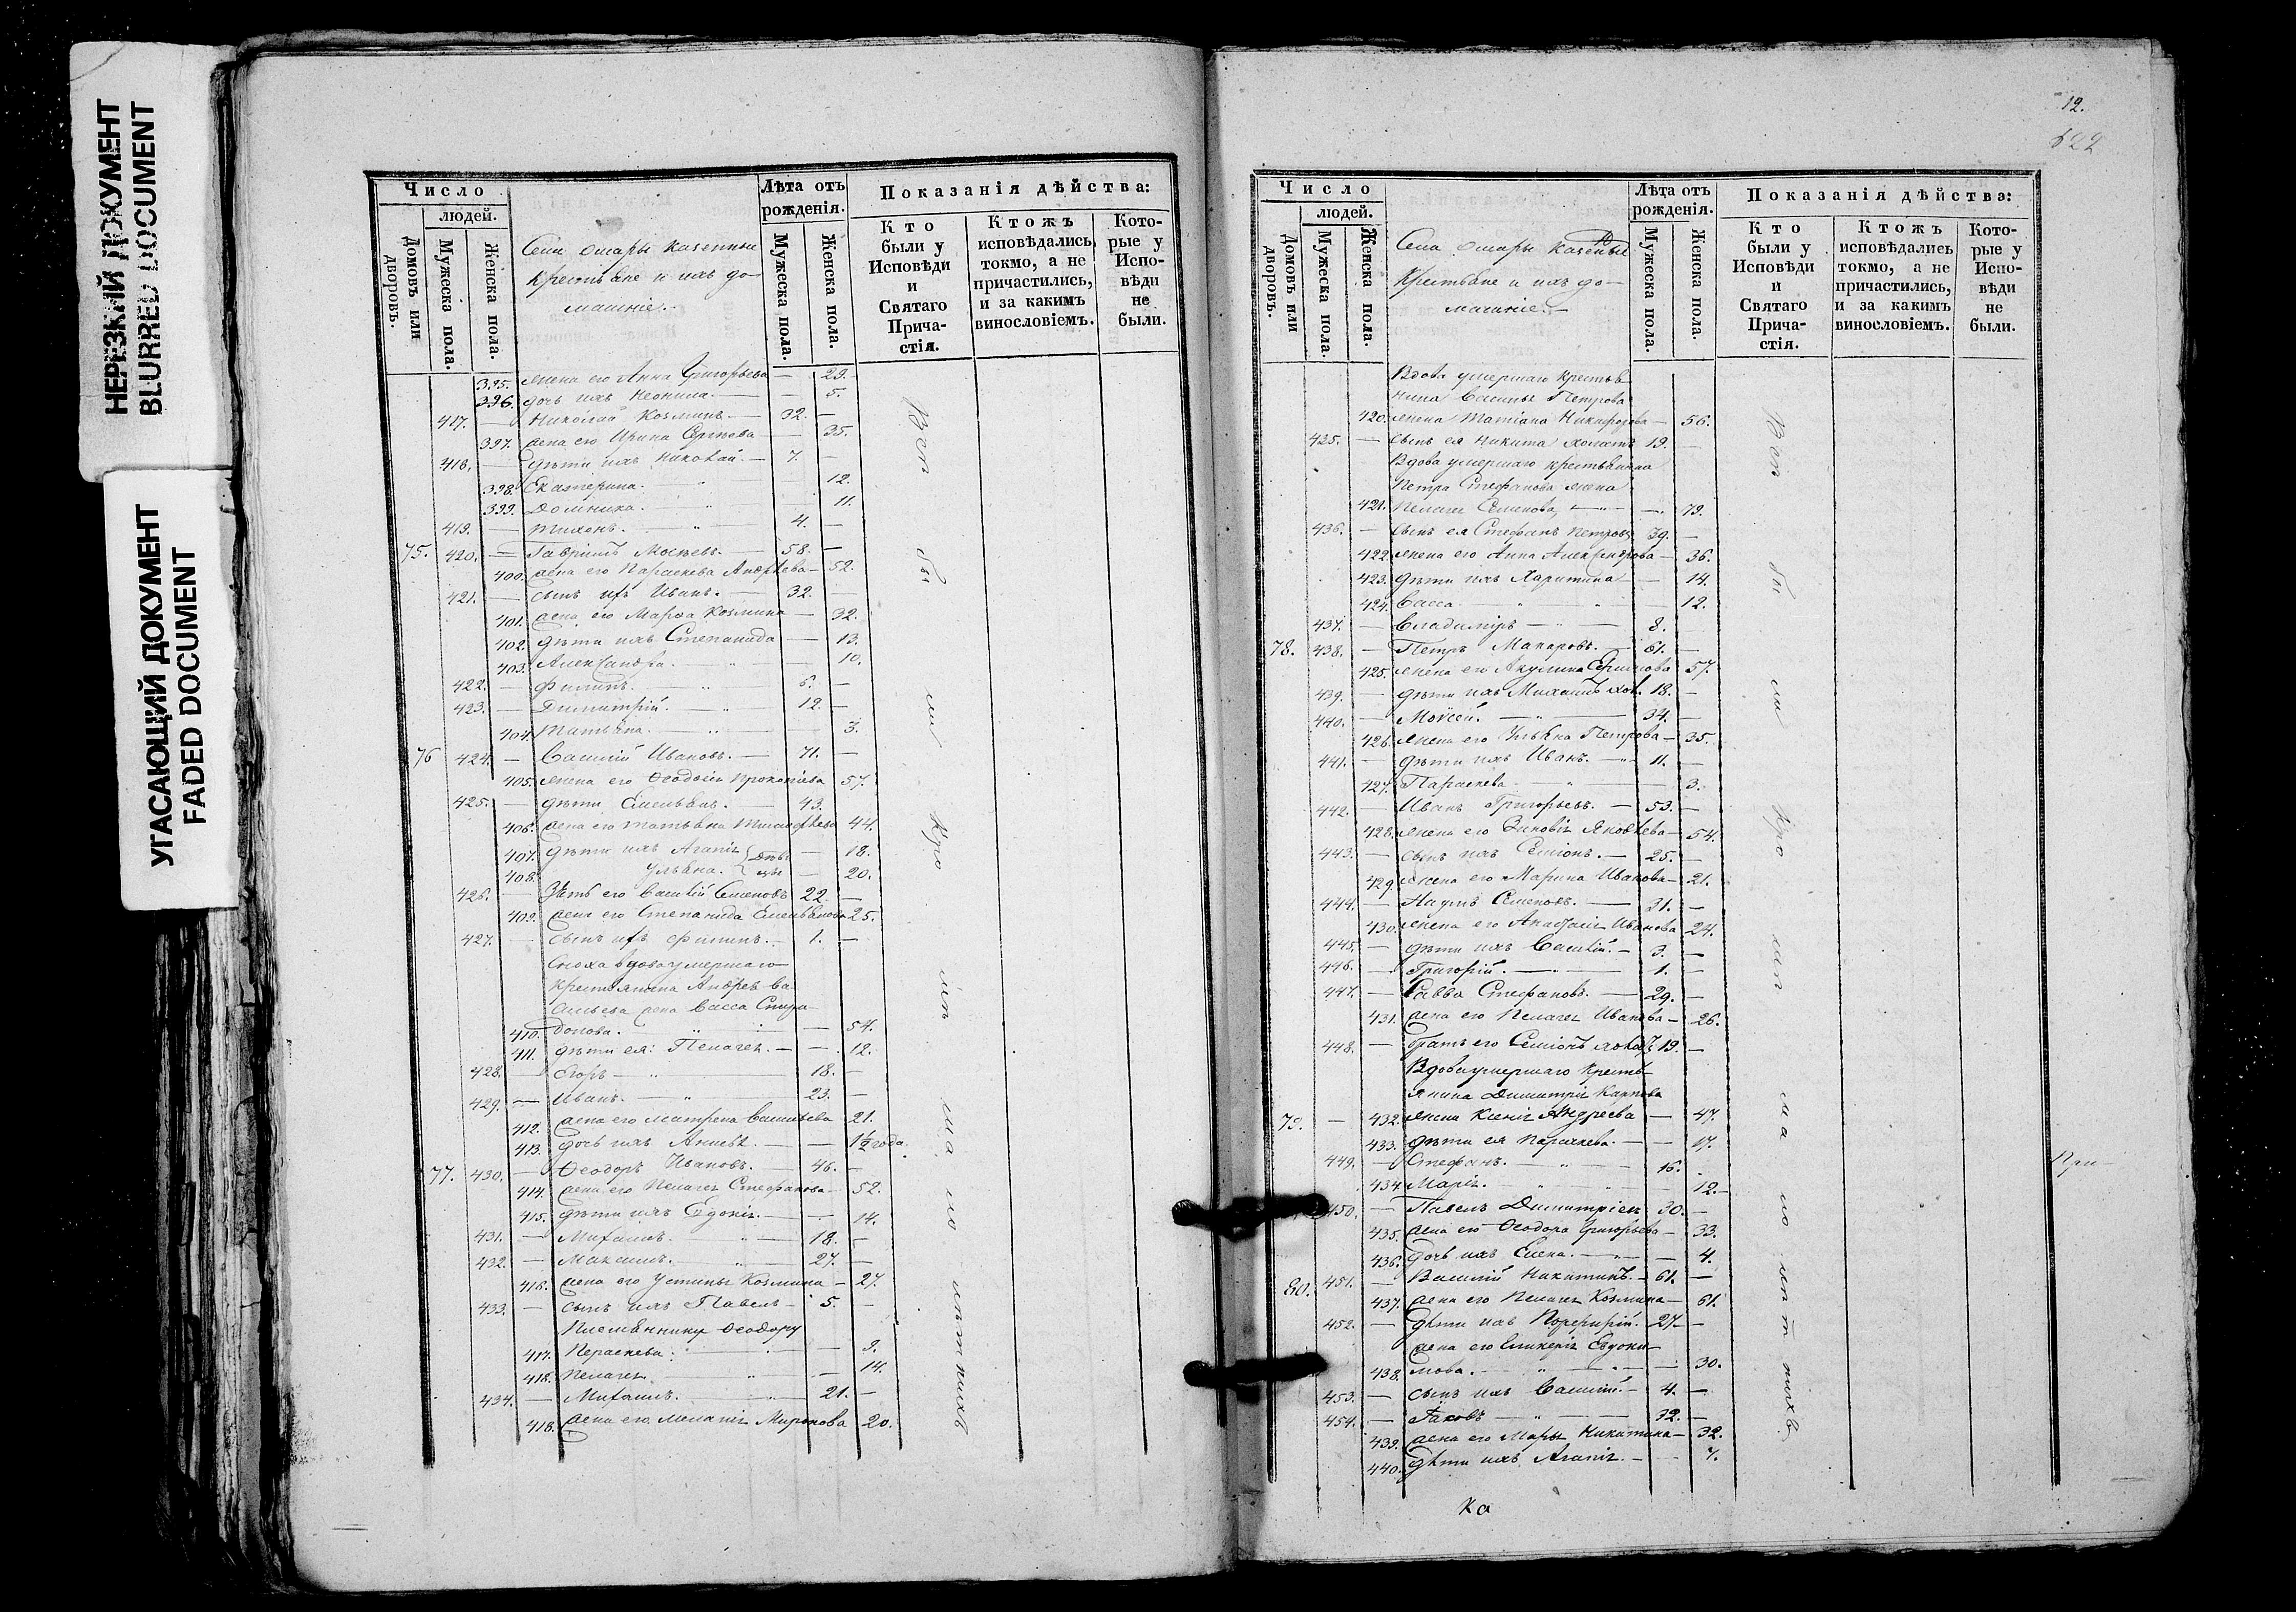 НЕРЕЗКИЙ ДОКУМЕНТ
BLURRED DOCUMENT
УГАСАЮЩИЙ ДОКУМЕНТ
FADED DOCUMENT
Число
людей.
Домовъ или дворовъ.
Мужеска пола.
Женска пола.
Села Отары казенные
крестьяне и ихъ до-
машніе.
Лѣта отъ
рожденія.
Мужеска пола.
Женска пола.
Показанія дѣйства:
Кто
были у
Исповѣди
и
Святаго
Прича-
стія.
Ктожъ
исповѣдались
токмо, а не
причастились,
и за какимъ
винословіемъ.
Кото-
рые у
Испо-
вѣди
не
были.
395. жена его Анна Григорьева — 29.
396. дочь ихъ — 5.
417. — Николай Козминъ. — 32. —
397. жена его Ирина Сергѣева — 35.
418. — дѣти ихъ Николай. — 7. —
398. Екатерина. — 12.
399. Домника. — 11.
419. — Тихонъ. 4. —
75. 420. — Гаврiилъ — 58. —
400. жена его Параскева Андрѣева — 52.
421. — сынъ ихъ Иванъ. — 32. —
401. жена его Марѳа Козмина — 32.
402. дѣти ихъ Степанида — 13.
403. Александра. — 10.
422. — Филипъ. 6. —
423. — Димитрій. 12. —
404. Татьяна. 3.
76 424. — Василій Ивановъ. — 71. —
405. жена его Ѳеодосія Прокопіева 57.
425. — дѣти Емельянъ. — 43.
406. жена его Татьяна 44.
407. дѣти ихъ Агапія — 18.
408. Ульяна. — 20.
426. — Зять его Василій Семеновъ 22. —
409. жена его Степанида Емельянова 25.
427. — сынъ ихъ Филипъ. — 1. —
Сноха вдова умершаго
крестьянина Андрея Ва-
сильева жена Васса Спири-
410. донова. — 54.
411. дѣти ея: Пелагея. — 12.
428. — Егоръ — 18. —
429. — Иванъ. 23. —
412. жена его Матрена Васильева 21.
413. дочь ихъ — 1½ года.
77. 430. — Ѳеодоръ Ивановъ. — 46. —
414. жена его Пелагея Стефанова — 52.
415. дѣти ихъ Евдокія. — 14.
431. — Михаилъ. 18. —
432. — Максимъ. 27. —
416. жена его Устинья Козмина — 27.
433. — сынъ ихъ Павелъ — 5. —
Племяннику Ѳеодору
417. Параскева. 9.
418. Пелагея. — 14.
434. — Михаилъ. 21. —
418. жена его Меланія Миронова 20.
Всѣ бы ли кро мѣ ма ло лѣтнихъ
12.
522
Число
людей.
Домовъ или дворовъ.
Мужеска пола.
Женска пола.
Села Отары казенные
крестьяне и ихъ до-
машніе. —
Лѣта отъ
рожденія.
Мужеска пола.
Женска пола.
Показанія дѣйства:
Кто
были у
Исповѣди
и
Святаго
Прича-
стія.
Ктожъ
исповѣдались
токмо, а не
причастились,
и за какимъ
винословіемъ.
Кото-
рые у
Испо-
вѣди
не
были.
Вдова умершаго крестья-
нина Василья Петрова
420. жена Татіана Никифорова — 56.
435. — сынъ ея Никита холостъ 19. —
Вдова умершаго крестьянина
Петра Стефанова жена
421. Пелагея Семенова — 79.
436. — сынъ ея Стефанъ Петровъ 39. —
422. жена его Анна Александрова — 36.
423. дѣти ихъ Харитина — 14.
424. Васса — 12.
437. — Владиміръ — 8.
78. 438. — Петръ Макаровъ. 61. —
425. жена его Акулина 57.
439. — дѣти ихъ Михаилъ хол. 18. —
440. — Моѵсей. — 34. —
426. жена его Ульяна Петрова — 35.
441. — дѣти ихъ Иванъ. — 11. —
427. Параскева. 3.
442. — Иванъ Григорьевъ. — 53. —
428. жена его Зиновія Яковлева — 54.
443. — сынъ ихъ Семіонъ. — 25. —
429. жена его Марина Иванова — 21.
444. — Наумъ Семеновъ. — 31. —
430. жена его Анастасія Иванова 24.
445. — дѣти ихъ Василій. — 3. —
446. — Григорій. — 1. —
447. — Савва Стефановъ. — 29. —
431. жена его Пелагея Иванова — 26.
448. — братъ его Семіонъ холост 19. —
Вдова умершаго кресть-
янина Димитрія Карпова
79. — 432. жена Ксенія Андреева — 47.
433. дѣти ея Параскева. — 17.
449. — Стефанъ. — 16. —
434. Марія. 12. —
450. — Павелъ Димитріев 30. —
435. жена его Ѳеодора Григорьева — 33.
436. дочь ихъ Елена. — 4.
80. 451. — Василій Никитинъ. — 61. —
437. жена его Пелагея Козмина — 61.
452. — дѣти ихъ Порфирій. 27. —
жена его Гликерія Евдоки-
438. мова. — 30.
453. — сынъ ихъ Василій. — 4. —
454. — Іаковъ — 32. —
439. жена его Марья Никитина — 32.
440. дѣти ихъ Агапія. — 7.
Всѣ бы ли кро мѣ ма ло лѣт нихъ
При-
Ка